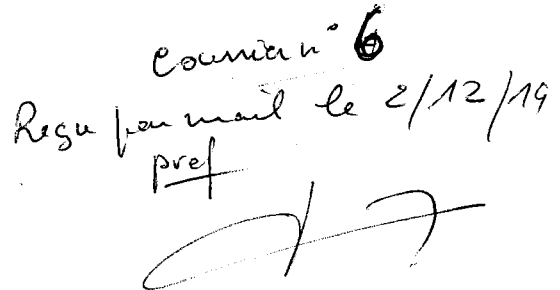 Courrier n° 6
Reçu par mail le 2/12/19
pref